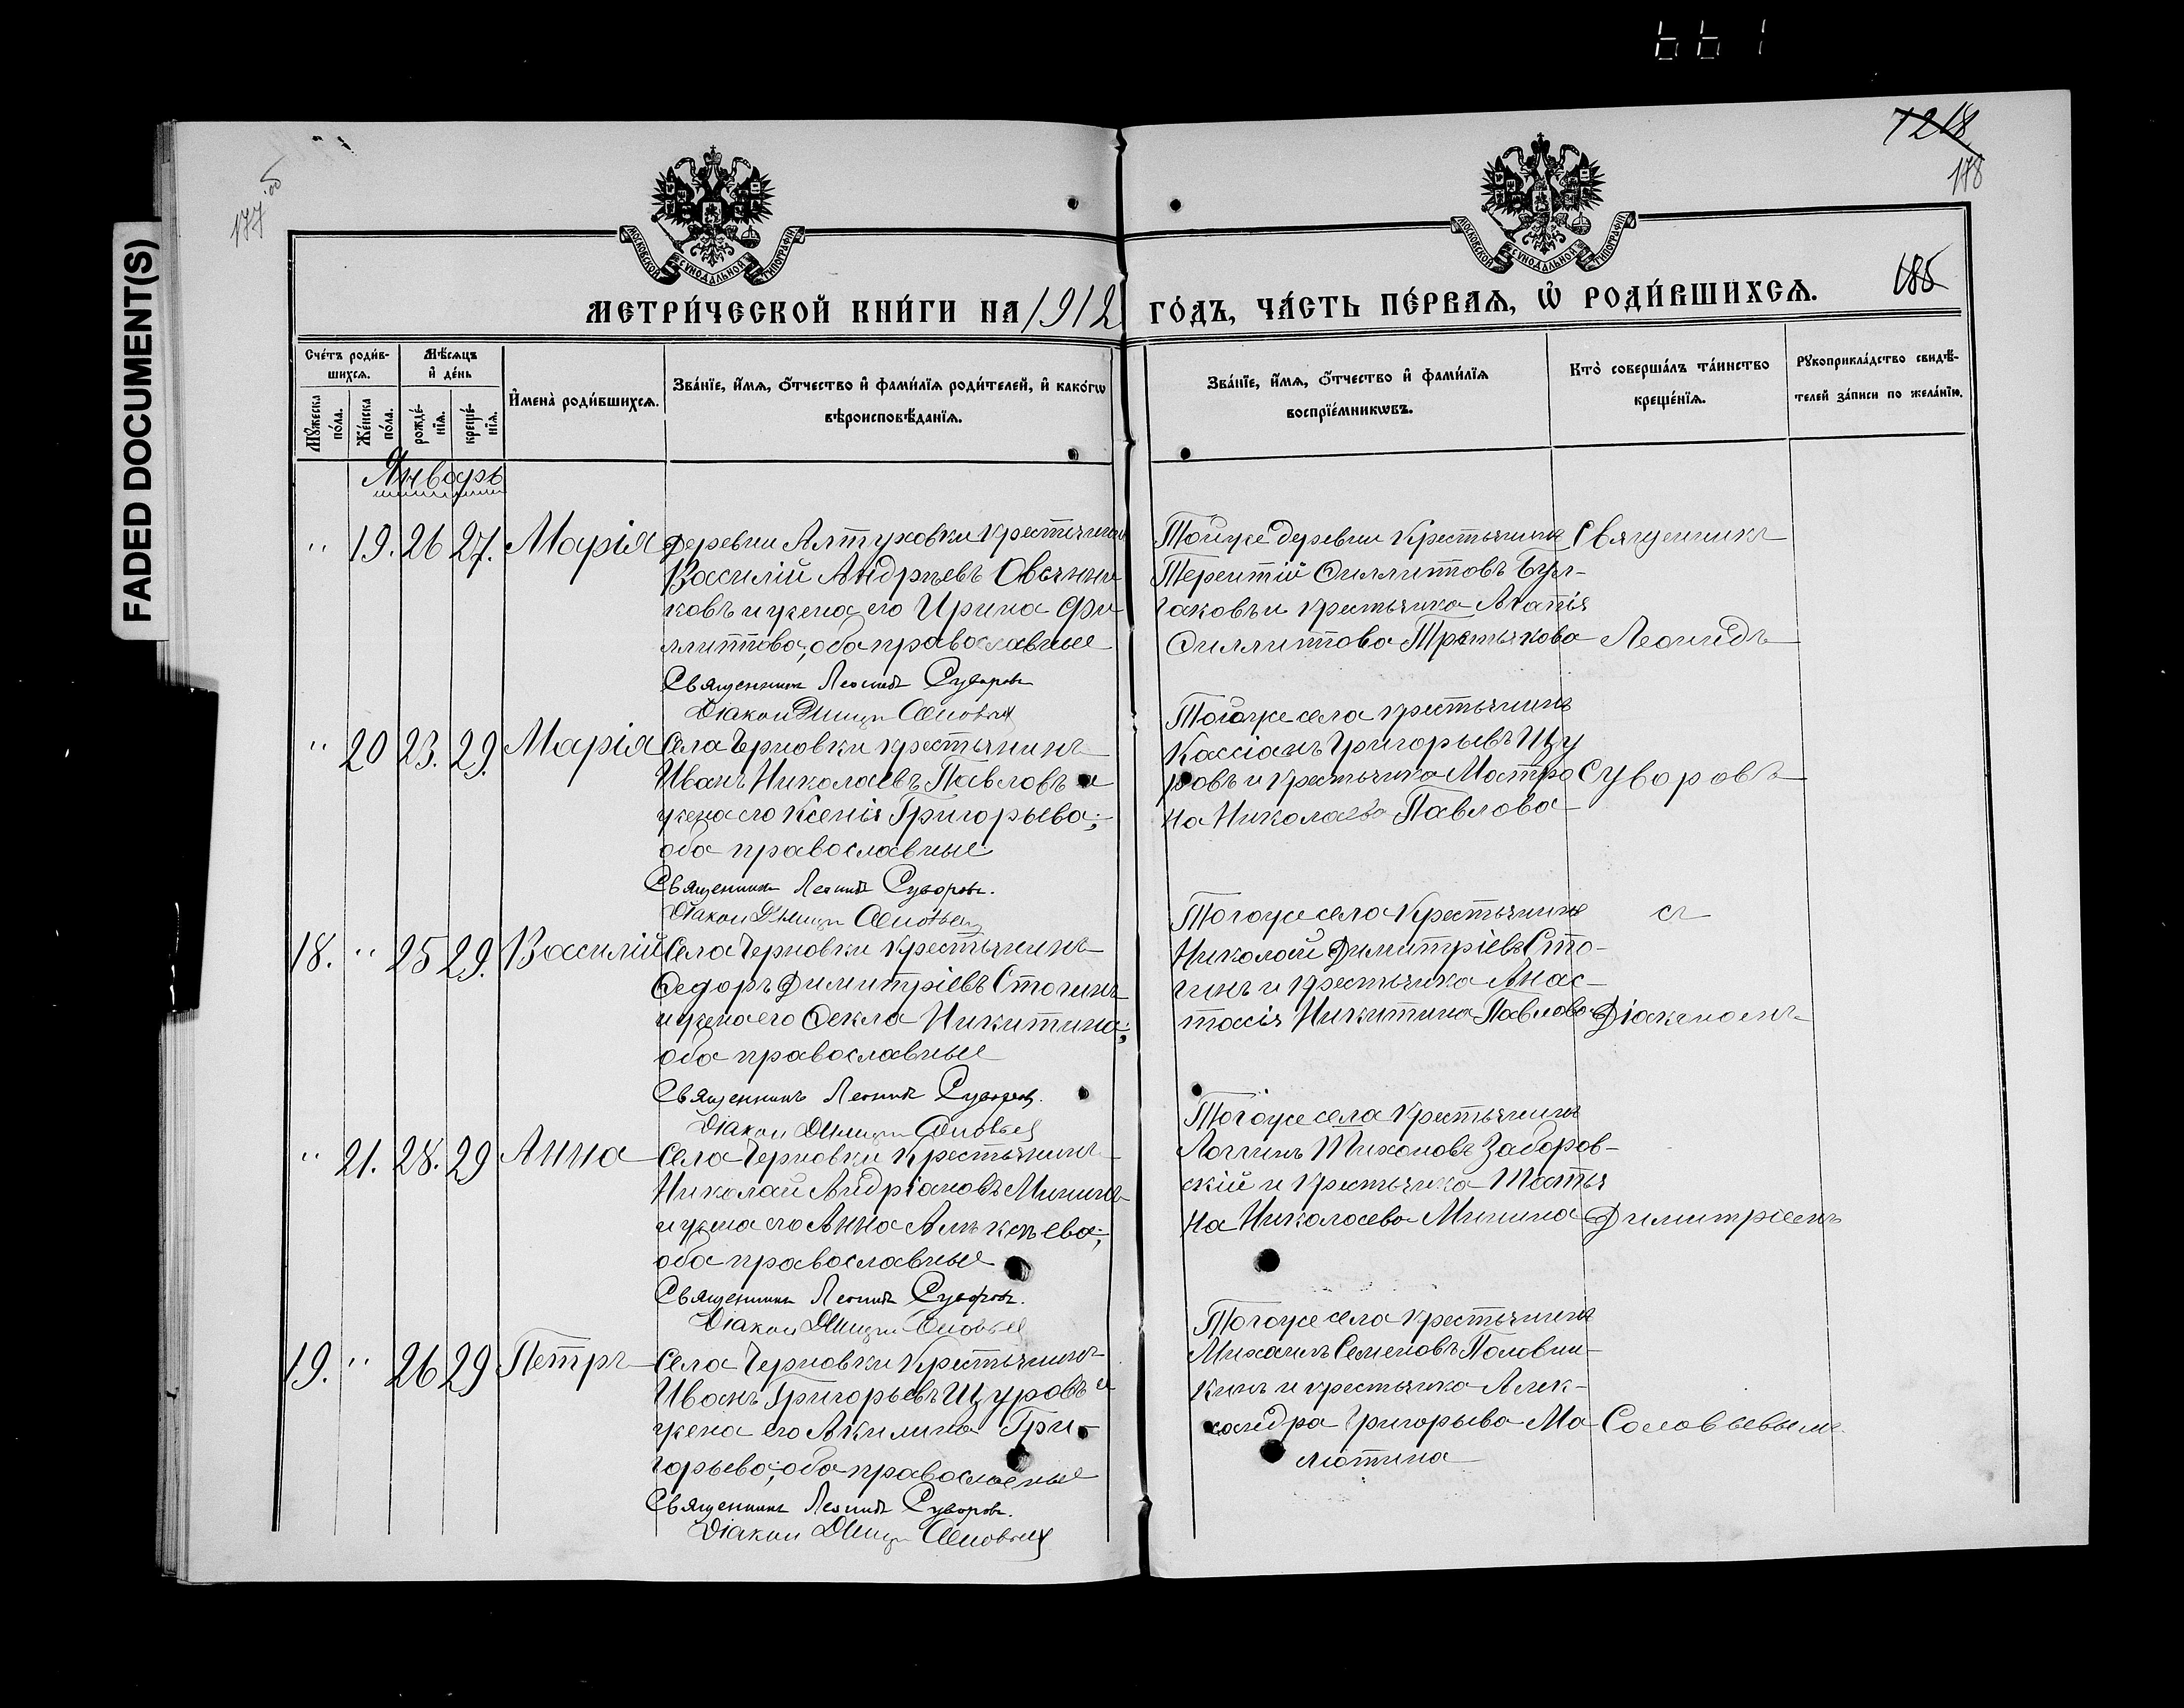 661
FADED DOCUMENT(S)
177 об
7218
178
МОСКОВСКОЙ СѴНОДАЛЬНОЙ ТИПОГРАФІИ
МОСКОВСКОЙ СѴНОДАЛЬНОЙ ТИПОГРАФІИ
МЕТРИ́ЧЕСКОЙ КНИ́ГИ НА 1912 ГО́ДЪ, ЧА́СТЬ ПЕ́РВАѦ, Ѡ҆ РОДИ́ВШИХСѦ.
185
Сче́тъ роди́в-
шихсѧ.
Мꙋ́жеска по́ла.
Же́нска по́ла.
Мѣ́сѧцъ
и҆ де́нь
рожде́-
нїѧ.
креще́-
нїѧ.
И҆мена̀ роди́вшихсѧ.
Зва́нїе, и҆́мѧ, ѻ҆́тчество и҆ фами́лїѧ роди́телей, и҆ како́гѡ
вѣроисповѣ́данїѧ.
Зва́нїе, и҆́мѧ, ѻ҆́тчество и҆ фами́лїѧ
воспрїе́мникѡвъ.
Кто̀ соверша́лъ та́инство
креще́нїѧ.
Рꙋкоприкла́дство свидѣ́-
телей за́писи по жела́нїю.
Январь
" 19. 26 27. Марія
деревни Алтуховки крестьянинъ
Василій Андреевъ Овчинни
ковъ и жена его Ирина Фи
липпова; оба православные
Священникъ Леонидъ Суворовъ
Діаконъ Димитрій Соловьевъ
Тойже деревни Крестьянинъ
Терентій Филипповъ Бул-
гаковъ и крестьянка Агапія
Филиппова Третьякова
Священникъ
Леонидъ
" 20 23. 29. Марія
Села Черновки крестьянинъ
Иванъ Николаевъ Павловъ и
жена его Ксенія Григорьева;
оба православные
Священникъ Леонидъ Суворовъ.
Діаконъ Димитрій Соловьевъ
Тогоже села крестьянинъ
Кассіанъ Григорьевъ Щу
ровъ и крестьянка Матро
на Николаева Павлова
Суворовъ
18. " 25 29. Василій
Села Черновки крестьянинъ
Ѳедоръ Димитріевъ Стогинъ
и жена его Ѳекла Никитина;
оба православные
Священникъ Леонидъ Суворовъ.
Діаконъ Димитрій Соловьевъ
Тогоже села Крестьянинъ
Николай Димитріевъ Сто-
гинъ и крестьянка Анас-
тасія Никитина Павлова
съ
Діакономъ
" 21. 28. 29 Анна
Села Черновки Крестьянинъ
Николай Андріановъ Мининъ
и жена его Анна Алексѣева;
оба православные
Священникъ Леонидъ Суворовъ.
Діаконъ Димитрій Соловьевъ
Тогоже села Крестьянинъ
Логгинъ Тихоновъ Заборов-
скій и Крестьянка Татья
на Николаева Минина
Димитріемъ
19. " 26 29 Петръ
Села Черновки Крестьянинъ
Иванъ Григорьевъ Щуровъ и
жена его Акилина Гри-
горьева; оба православные
Священникъ Леонидъ Суворовъ.
Діаконъ Димитрій Соловьевъ
Тогоже села крестьянинъ
Михаилъ Семеновъ Половин-
кинъ и крестьянка Алек-
сандра Григорьева Ма
лютина
Соловьевымъ